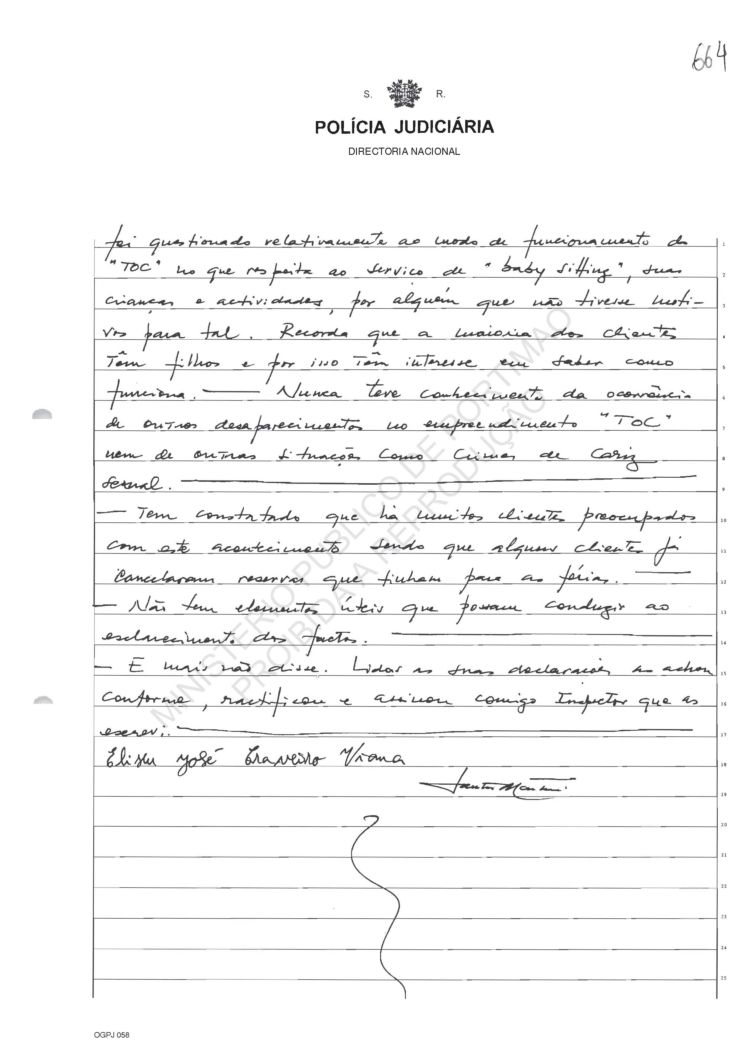 664
S. R.
POLÍCIA JUDICIÁRIA
DIRECTORIA NACIONAL
foi questionado relativamente ao modo de funcionamento do 1
"TOC" no que respeita ao serviço de "baby sitting", suas 2
crianças e actividades, por alguém que não tivesse moti- 3
vos para tal. Recorda que a maioria dos clientes 4
Têm filhos e por isso Têm interesse em saber como 5
funciona. — Nunca teve conhecimento da ocorrência 6
de outros desaparecimentos no empreendimento "TOC" 7
nem de outras situações como Crimes de Cariz 8
Sexual. 9
— Tem constatado que há muitos clientes preocupados 10
com este acontecimento sendo que alguns clientes já 11
Cancelaram reservas que tinham para as férias. — 12
— Não tem elementos úteis que possam conduzir ao 13
esclarecimento dos factos. 14
— E mais não disse. Lidas as suas declarações as achou 15
conforme, ractificou e assinou comigo Inspector que as 16
escrevi. 17
Eliseu José Craveiro Viana 18
19
20
21
22
23
24
25
MINISTÉRIO PÚBLICO DE PORTIMÃO
PROIBIDA A REPRODUÇÃO
OGPJ 058